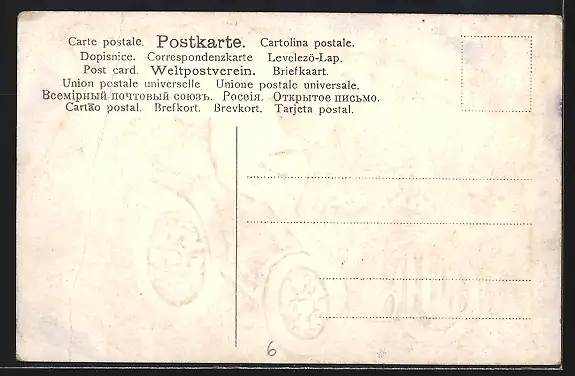 Carte postale. Postkarte. Cartolina postale.
Dopisnice. Correspondenzkarte Levelezö-Lap.
Post card. Weltpostverein. Briefkaart.
Union postale universelle Unione postale universale.
Всемірный почтовый союзъ. Россія. Открытое письмо.
Cartão postal. Brefkort. Brevkort. Tarjeta postal.
6